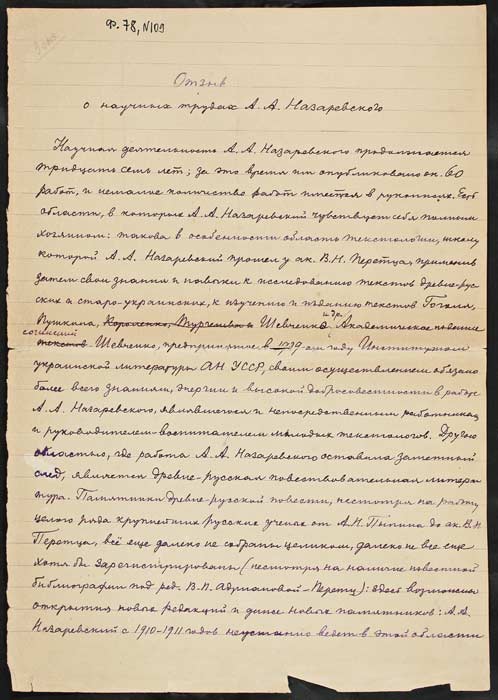 Ф. 78, №109
Отзыв
о научных трудах А. А. Назаревского
Научная деятельность А. А. Назаревского продолжается
тридцать семь лет; за это время им опубликовано ок. 60
работ, и немалое количество работ имеется в рукописях. Есть
области, в которых А. А. Назаревский чувствует себя полным
хозяином: такова в особенности область текстологии, школу
которой А. А. Назаревский прошел у ак. В. Н. Перетца, применив
затем свои знания и навыки к исследованию текстов древне-рус-
ских и старо-украинских, к изучению и изданию текстов Гоголя,
и др.
Пушкина, Короленко, Тургенева и Шевченко. Академическое издание
сочинений
текстов Шевченко, предпринятое в 1939-ом году Институтом
украинской литературы АН УССР, своим осуществлением обязано
более всего знаниям, энергии и высокой добросовестности в работе
А. А. Назаревского, являвшегося и непосредственным работником
и руководителем-воспитателем молодых текстологов. Другою
областью, где работа А. А. Назаревского оставила заметный
след, является древне-русская повествовательная литера-
тура. Памятники древне-русской повести, несмотря на работу
целого ряда крупнейших русских ученых от А. Н. Пыпина до ак. В. Н.
Перетца, всё еще далеко не собраны целиком, далеко не все еще
хотя бы зарегистрированы (несмотря на наличие известной
библиографии под ред. В. П. Адриановой-Перетц): здесь возможны
открытия новых редакций и даже новых памятников: А. А.
Назаревский с 1910-1911 годов неустанно ведет в этой области